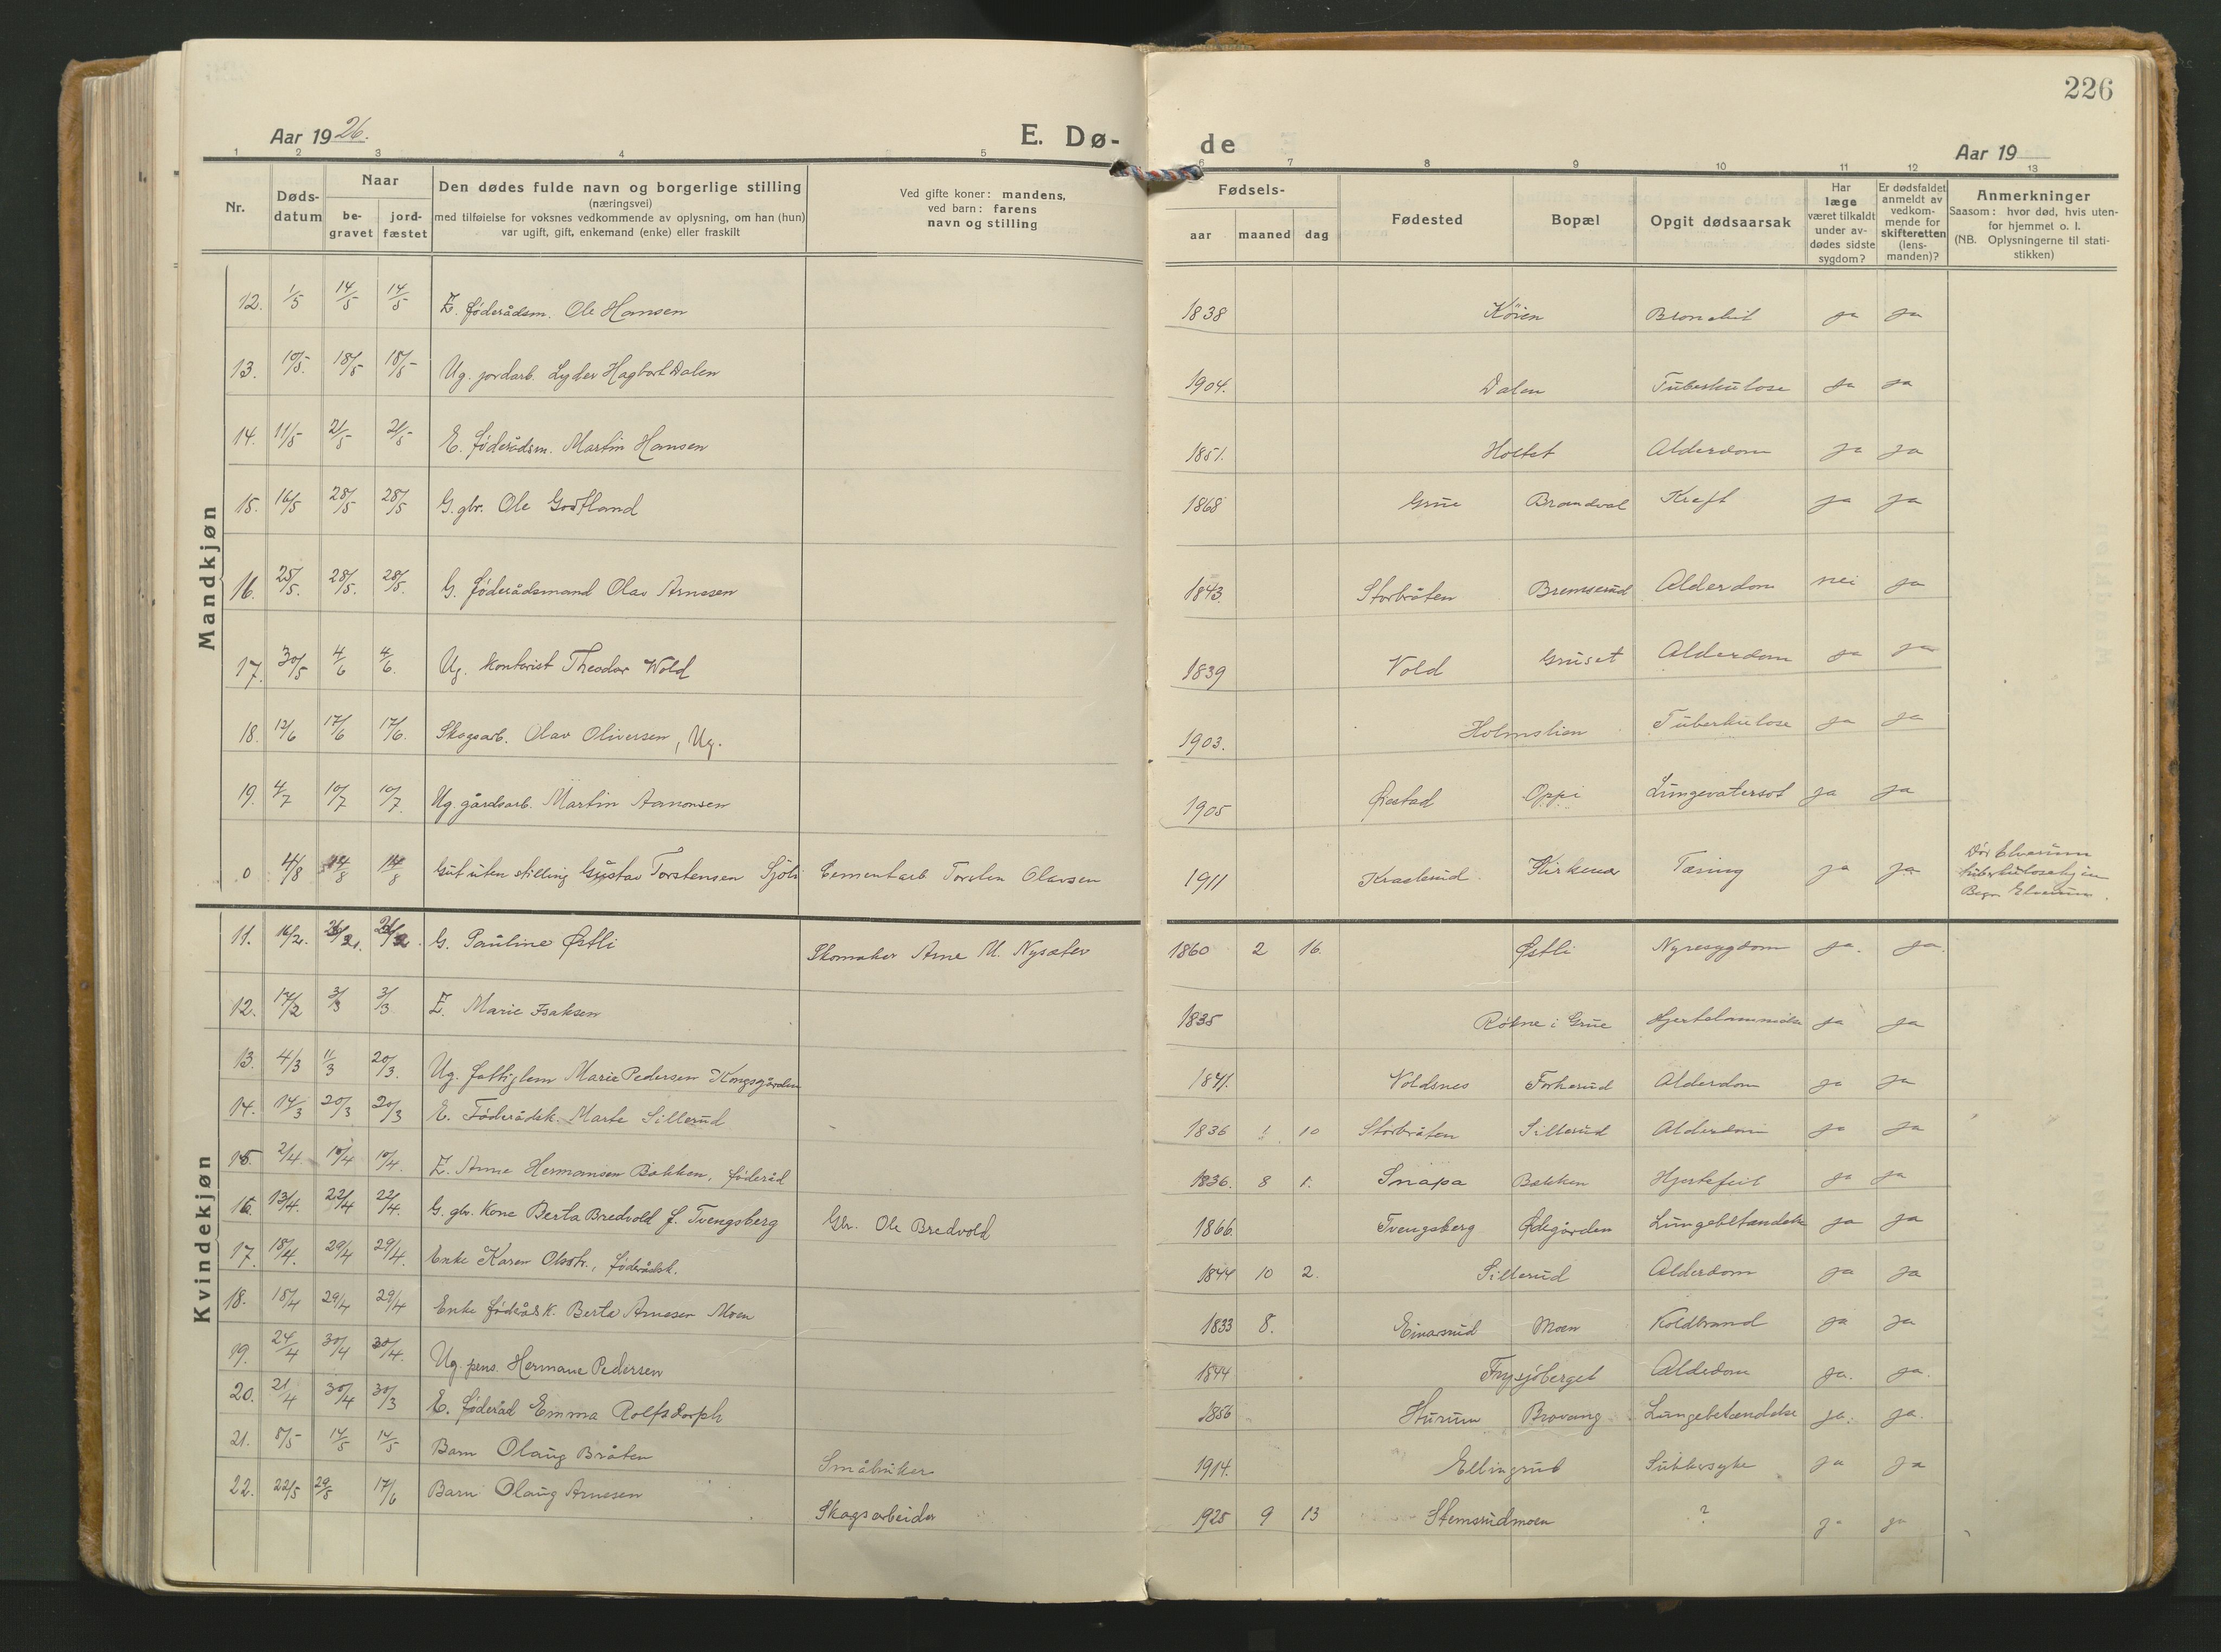 226
Aar 1926.
E. Dø-
de
Aar 19
1 2 3 4 5 6 7 8 9 10 11 12 13
Nr.
Døds-
datum
Naar
be-
gravet
jord-
fæstet
Den dødes fulde navn og borgerlige stilling
(næringsvei)
med tilføielse for voksnes vedkommende av oplysning, om han (hun)
var ugift, gift, enkemand (enke) eller fraskilt
Ved gifte koner: mandens,
ved barn: farens
navn og stilling
Fødsels-
aar maaned dag
Fødested
Bopæl
Opgit dødsaarsak
Har
læge
været tilkaldt
under av-
dødes sidste
sygdom?
Er dødsfaldet
anmeldt av
vedkom-
mende for
skifteretten
(lens-
manden)?
Anmerkninger
Saasom: hvor død, hvis uten-
for hjemmet o. l.
(NB. Oplysningerne til stati-
stikken)
Mandkjøn
12. 1/5 14/5 14/5 E. føderådsm. Ole Hansen 1838 Köien Bronchit ja ja
13. 10/5. 18/5 18/5 Ug. jordarb. Lyder Hagbart Dalen 1904. Dalen Tuberkulose ja ja
14. 11/5 21/5 21/5 E. føderådsm. Martin Hansen 1851. Holtet Alderdom ja ja
15. 16/5 28/5 28/5 G. gbr. Ole Godtland 1868 Grue Brandval Kreft ja ja
16. 25/5. 28/5. 28/5. G. føderådsmand Olav Arnesen 1843. Storbråten Bremserud Alderdom nei ja
17. 30/5 4/6 4/6. Ug. kontorist Theodor Wold 1839 Vold Gruset Alderdom ja ja
18. 12/6 17/6 17/6. Skogsarb. Olav Oliversen, Ug. 1903. Holmslien Tuberkulose ja ja
19. 4/7 10/7 10/7. Ug. gårdsarb. Martin Aamonsen 1905 Øiestad Oppi Lungevatersot ja ja
0 4/8 14/8 14/8 Gut uten stilling Gustav Torstensen Sjöli Cementarb Torsten Olavsen 1911 Kraelerud Kirkener Tæring ja ja
Død Elverum
tuberkulosehj. in
Begr. Elverum.
Kvindekjøn
11. 16/2. G. Pauline Østli Skomaker Arne M. Nysæter 1860 2 16. Østli Nyresygdom ja. ja.
12. 17/2 3/3 3/3 E. Marie Isaksen 1835 Rotne i Grue Hjertelammelse ja ja
13. 4/3 11/3 20/3. Ug. fattiglem Marie Pedersen Kongsgården 1841. Voldsnes Forkerud Alderdom ja ja
14. 14/3 20/3 20/3 E. Føderådsk. Marte Sillerud 1836 1 10 Storbråten Sillerud Alderdom ja ja
15. 2/4 10/4 10/4. E. Anne Hermansen Bakken, føderåd 1836. 8 1. Snapa Bakken Hjertefeil ja ja
16. 13/4. 22/4 22/4. G. gbr. kone Berta Bredvold f. Tvengsberg Gbr. Ole Bredvold 1866. Tvengsberg Ødegården Lungebetændelse ja ja
17. 18/4. 29/4 29/4. Enke Karen Olsdtr., føderådsk. 1844 10 2. Sillerud Alderdom ja ja
18. 18/4 29/4 29/4 Enke føderådsk. Berte Arnesen Moen 1833 8. Einarsrud Moen Koldbrand ja ja
19. 24/4 30/4 30/4. Ug. pens. Hermane Pedersen 1844 Frysjöberget Aldedom ja. ja.
20. 21/4 30/4 30/3 E. føderåd Emma Rolfsdorph 1856 Hurum Brovang Lungebetændelse ja. ja.
21. 8/5 14/5 14/5 Barn Olaug Bråten Småbruker 1914. Ellingrud Sukkersyke ja ja
22. 22/5 29/5 17/6 Barn Olaug Arnesen Skogsarbeider 1925 9 13 Stemsrudmoen ? ja ja